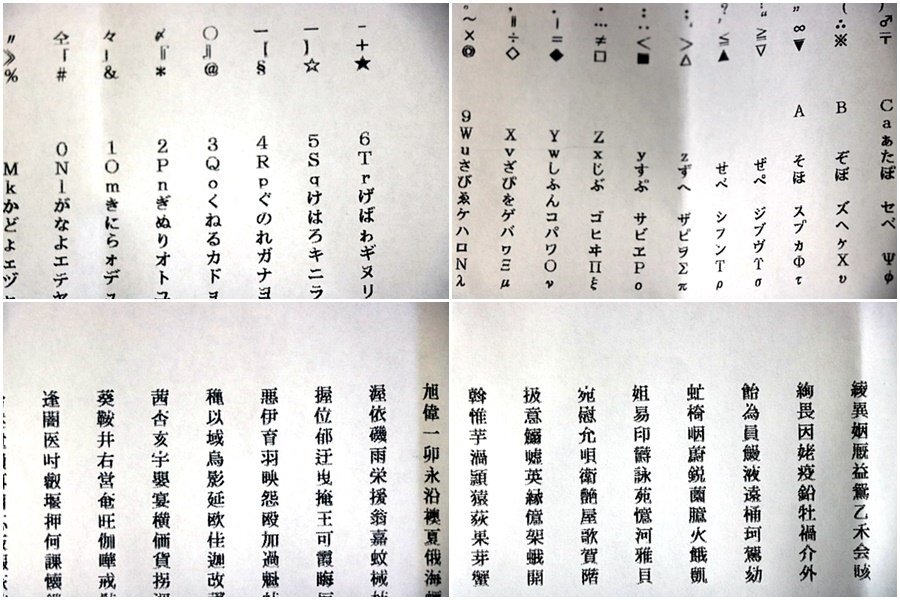 〃 仝 々 〆 〇 ー ― ‐
》 「 」 『 』 【 】 ＋
% # & * @ § ☆ ★
0 1 2 3 4 5 6
M N O P Q R S T
k l m n o p q r
か が き ぎ く ぐ け げ
ど な に ぬ ね の は ば
ょ よ ら り る れ ろ わ
ェ エ ォ オ カ ガ キ ギ
ヅ テ デ ト ド ナ ニ ヌ
ャ ヤ ュ ユ ョ ヨ ラ リ
～ ‖ ｜ … ‥ ‘ ’ “ ” （ ）
× ÷ ＝ ≠ ＜ ＞ ≦ ≧ ∞ ∴ ♂
◎ ◇ ◆ □ ■ △ ▲ ▽ ▼ ※ 〒
9 A B C
W X Y Z a
u v w x y z ぁ
さ ざ し じ す ず せ ぜ そ ぞ た
び ぴ ふ ぶ ぷ へ べ ぺ ほ ぼ ぽ
ゑ を ん
ケ ゲ コ ゴ サ ザ シ ジ ス ズ セ
ハ バ パ ヒ ビ ピ フ ブ プ ヘ ベ
ロ ヮ ワ ヰ ヱ ヲ ン ヴ ヵ ヶ
Ν Ξ Ο Π Ρ Σ Τ Υ Φ Χ Ψ
λ μ ν ξ ο π ρ σ τ υ φ
逢 葵 茜 穐 悪 握 渥 旭
闇 鞍 杏 以 伊 位 依 偉
医 井 亥 域 育 郁 磯 一
吋 右 宇 烏 羽 迂 雨 卯
叡 営 嬰 影 映 曳 栄 永
堰 奄 宴 延 怨 掩 援 沿
押 旺 横 欧 殴 王 翁 襖
何 伽 価 佳 加 可 嘉 夏
課 嘩 貨 迦 過 霞 蚊 俄
懐 戒 拐 改 魁 晦 械 海
斡 扱 宛 姐 虻 飴 絢 綾
惟 意 慰 易 椅 為 畏 異
芋 鰯 允 印 咽 員 因 姻
渦 嘘 唄 欝 蔚 鰻 姥 厩
頴 英 衛 詠 鋭 液 疫 益
猿 縁 艶 苑 薗 遠 鉛 鴛
荻 億 屋 憶 臆 桶 牡 乙
果 架 歌 河 火 珂 禍 禾
芽 蛾 賀 雅 餓 駕 介 会
蟹 開 階 貝 凱 劾 外 咳